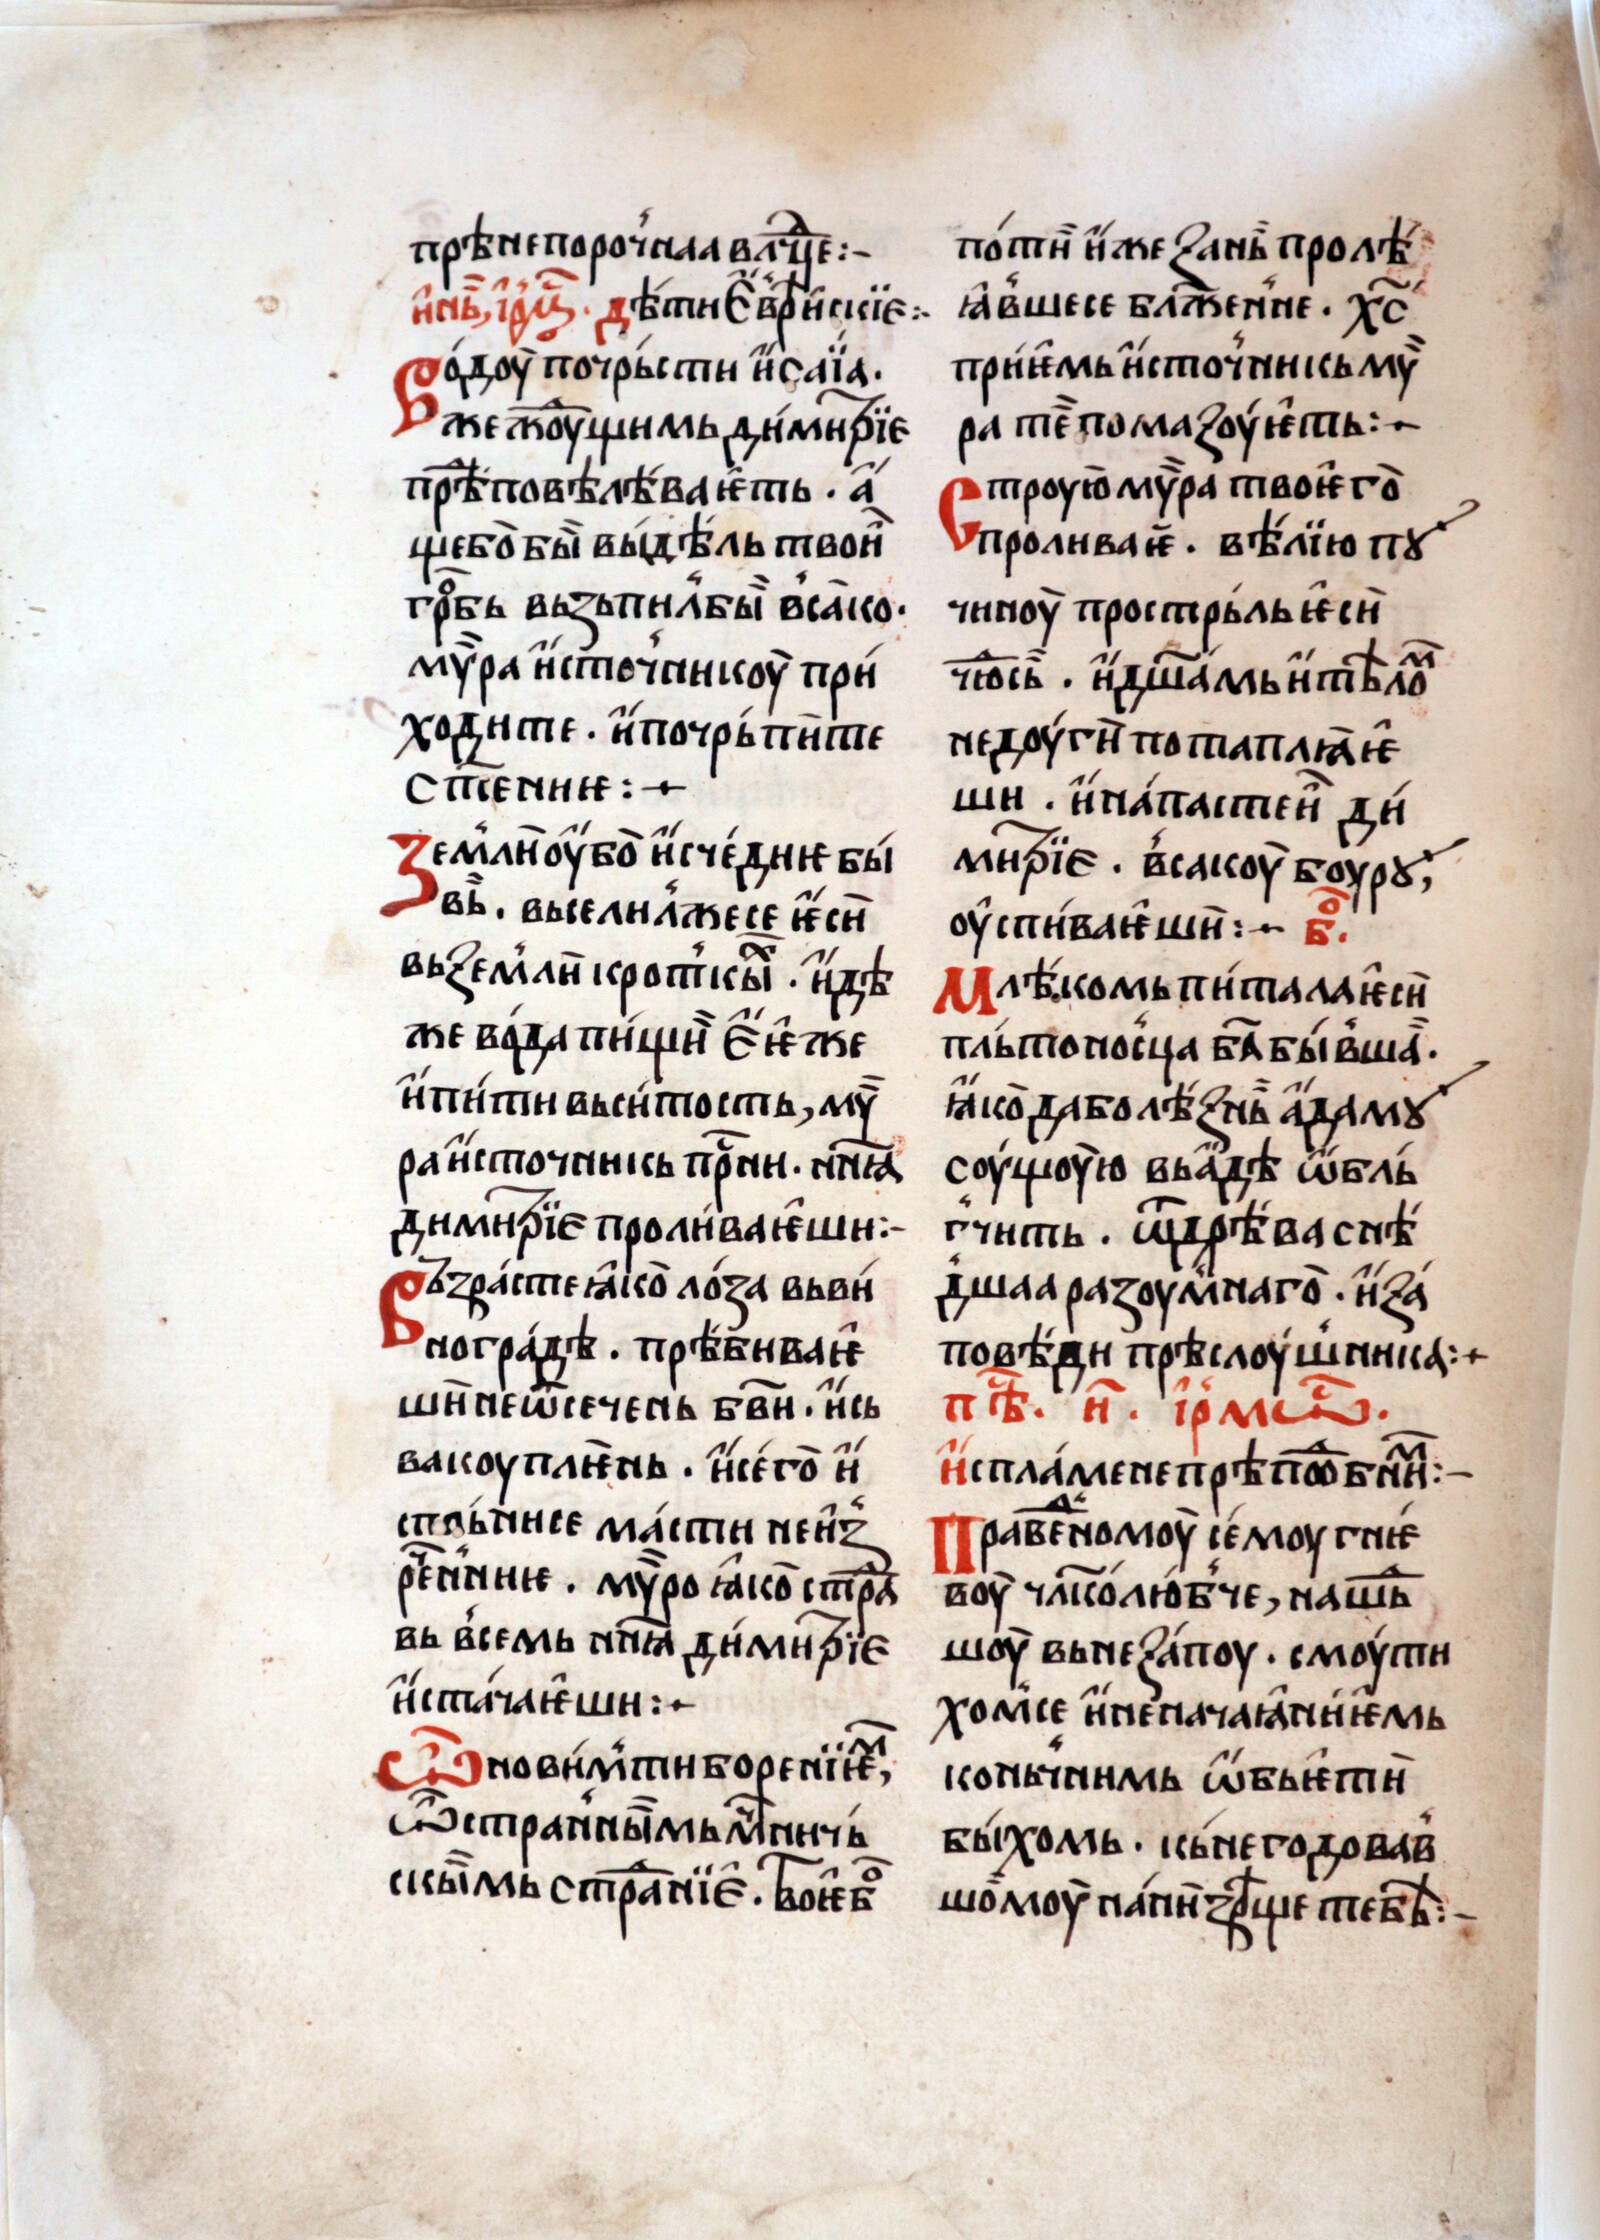 прѣ непороч́наа влⷣчце :-
и҆нь, і҆рмⷭ҇. дѣти Є҆вре́искїе :-
Во́доу почрьсти и҆саі́а.
же жоу́щимь ди́митрїе
прѣповѣлѣ́ваѥть . а҆́
ще бо бы̀ вы́дѣль твои̑
гро́бь вьзьпил̾ бы̀ в̾сако .
мѵ̑ра и҆сточ̾никоу при́
ходите . и҆ почрьпи́те
спⷭ҇ение :+
Зем̾ли оу҆бо и҆сче́диѥ бы́
вь . вьселил̾ же се ѥ҆си
вь зем̾ли крот̾кыⷯ . и҆дѣ
же во́да пи́щи є҆ѥ же
и҆ пи́ти вь си́тость, мѵ̑
ра и҆сточникь прⷭ҇ни . ннꙗ҃
димитрїе проли́ваѥши :-
Вьзра́сте ꙗ҆ко ло́за вь ви́
ногра́дѣ . прѣ́биваѥ
ши не ѿсечень бж҃и . и҆ сь
вакоупл҄ѥнь . и҆ сего и҆
спль́ни се ма́сти неиз̾
рече́н̾ниѥ . мѵ̑ро ꙗ҆ко стра
вь в̾семь ннꙗ҃ ди́митрїе
и҆ста́чаѥши :+
Ѡ҆нови́м̾ ти борение́ⷨ,
ѿ стран̾ныимь мч҃ничь
скыимь страниїе . твоѥ бо
по́ти и҆же за нь пролѣ́
ꙗ҆в̾ше се бл҃женне . хс҃
прие́мь и҆сточ̾никь мѵ̑
ра те помазоу́ѥть :+
Строую мѵ̑ра твоѥго
проливаѥ . вѣ́лїю пꙋ
чиноу прострь́ль ѥ҆си
чюⷣсь . и҆ дш҃амь и҆ тѣлоⷨ
недоу́ги потаплꙗ́ѥ
ши . и҆ на́пастеи ди́
митрїе . в̾сакоу боурꙋ,
оу҆спи́ваѥши :+ боⷢ.
Млѣ́комь пи́тала ѥ҆си
пль́тоно́с̾ца ба҃ бы́в̾ша .
ꙗ҆ко да болѣ́знь а҆дамꙋ
соу́щоую вь а҆дѣ ѡ҆бль
г̾чить . ѿ дрѣ́ва снѣ́
д̾шаа разоум̾наго . и҆ за́
повѣди прѣслоу́ш̾ника :+
пⷭ҇ѣ. и҃. і҆рмоⷭ҇.
И҆с пла́мене прѣпоⷣб̾ниⷨ :-
Праведⷣномоу се́моу гнѥ́
воу чл҃колю́б̾че, нашь
шоу вьнеза́поу . смоу́ти
хом̾ се и҆ неначаꙗ́ние́мь
коньч̾нимь ѡ҆бьѥти
бы́хомь . кь негодовав̾
шомоу на́ни зрѣще тебѣ :-